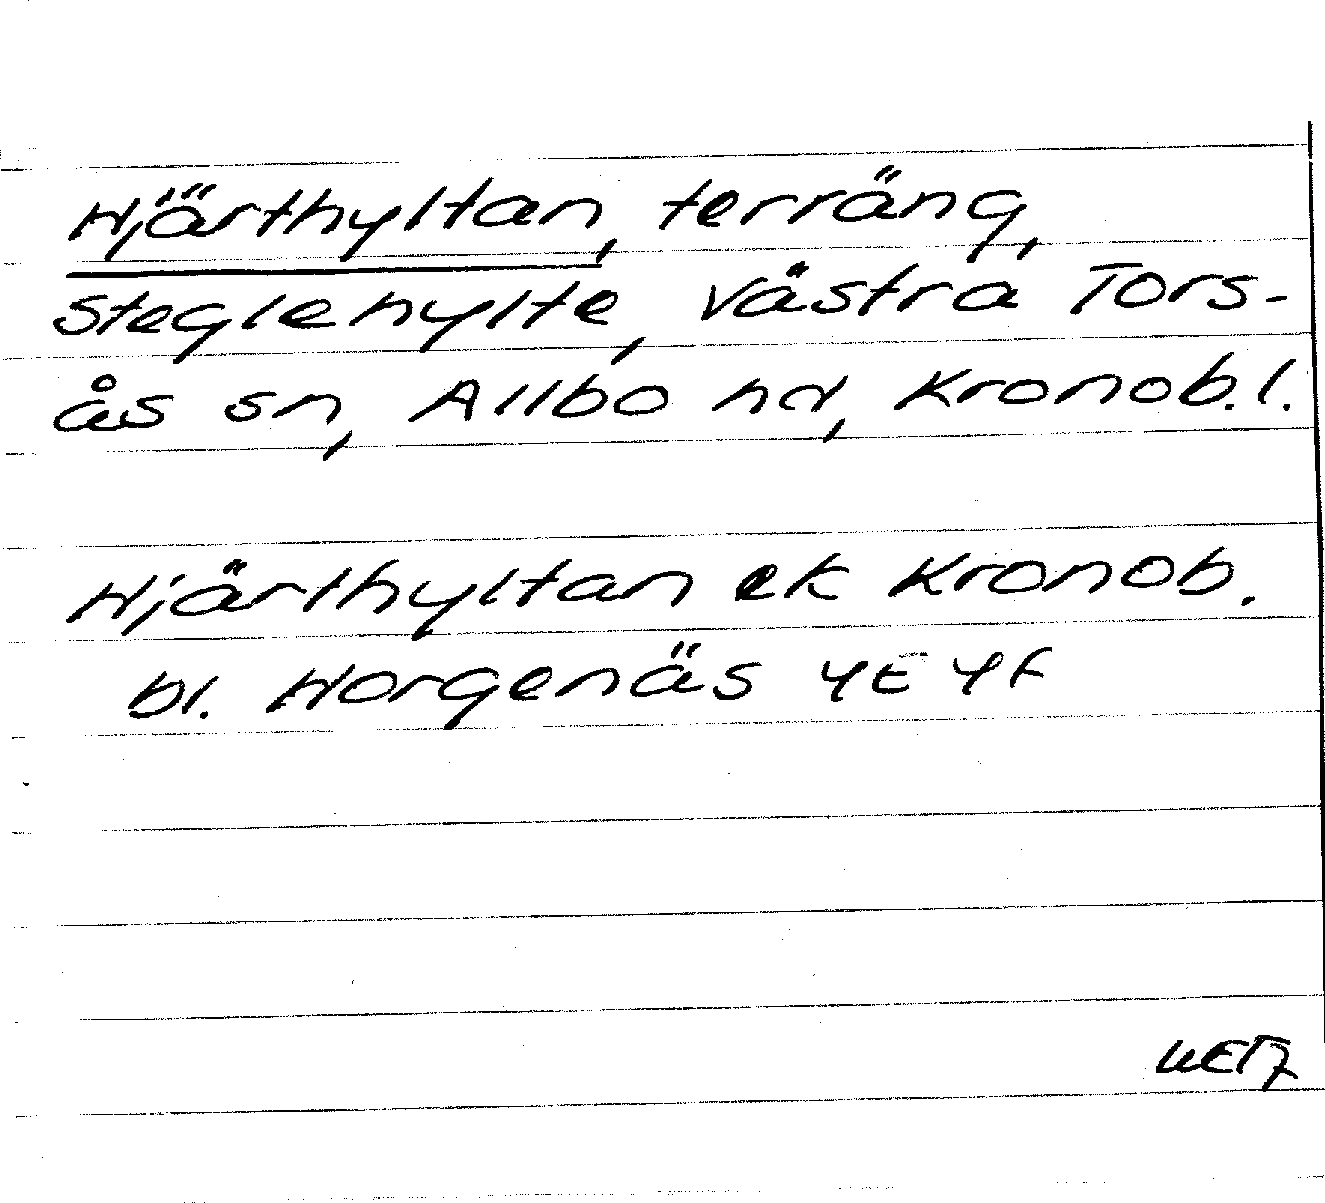 Hjärthyltan, terräng,
Steglehylte, Västra Tors-
ås sn, Allbo hd, Kronob. l.
Hjärthyltan ek Kronob.
bl. Horgenäs 4E 4f